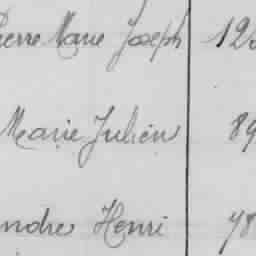 Pierre Marie Joseph 12
Marie Julien 89
andre Henri 78